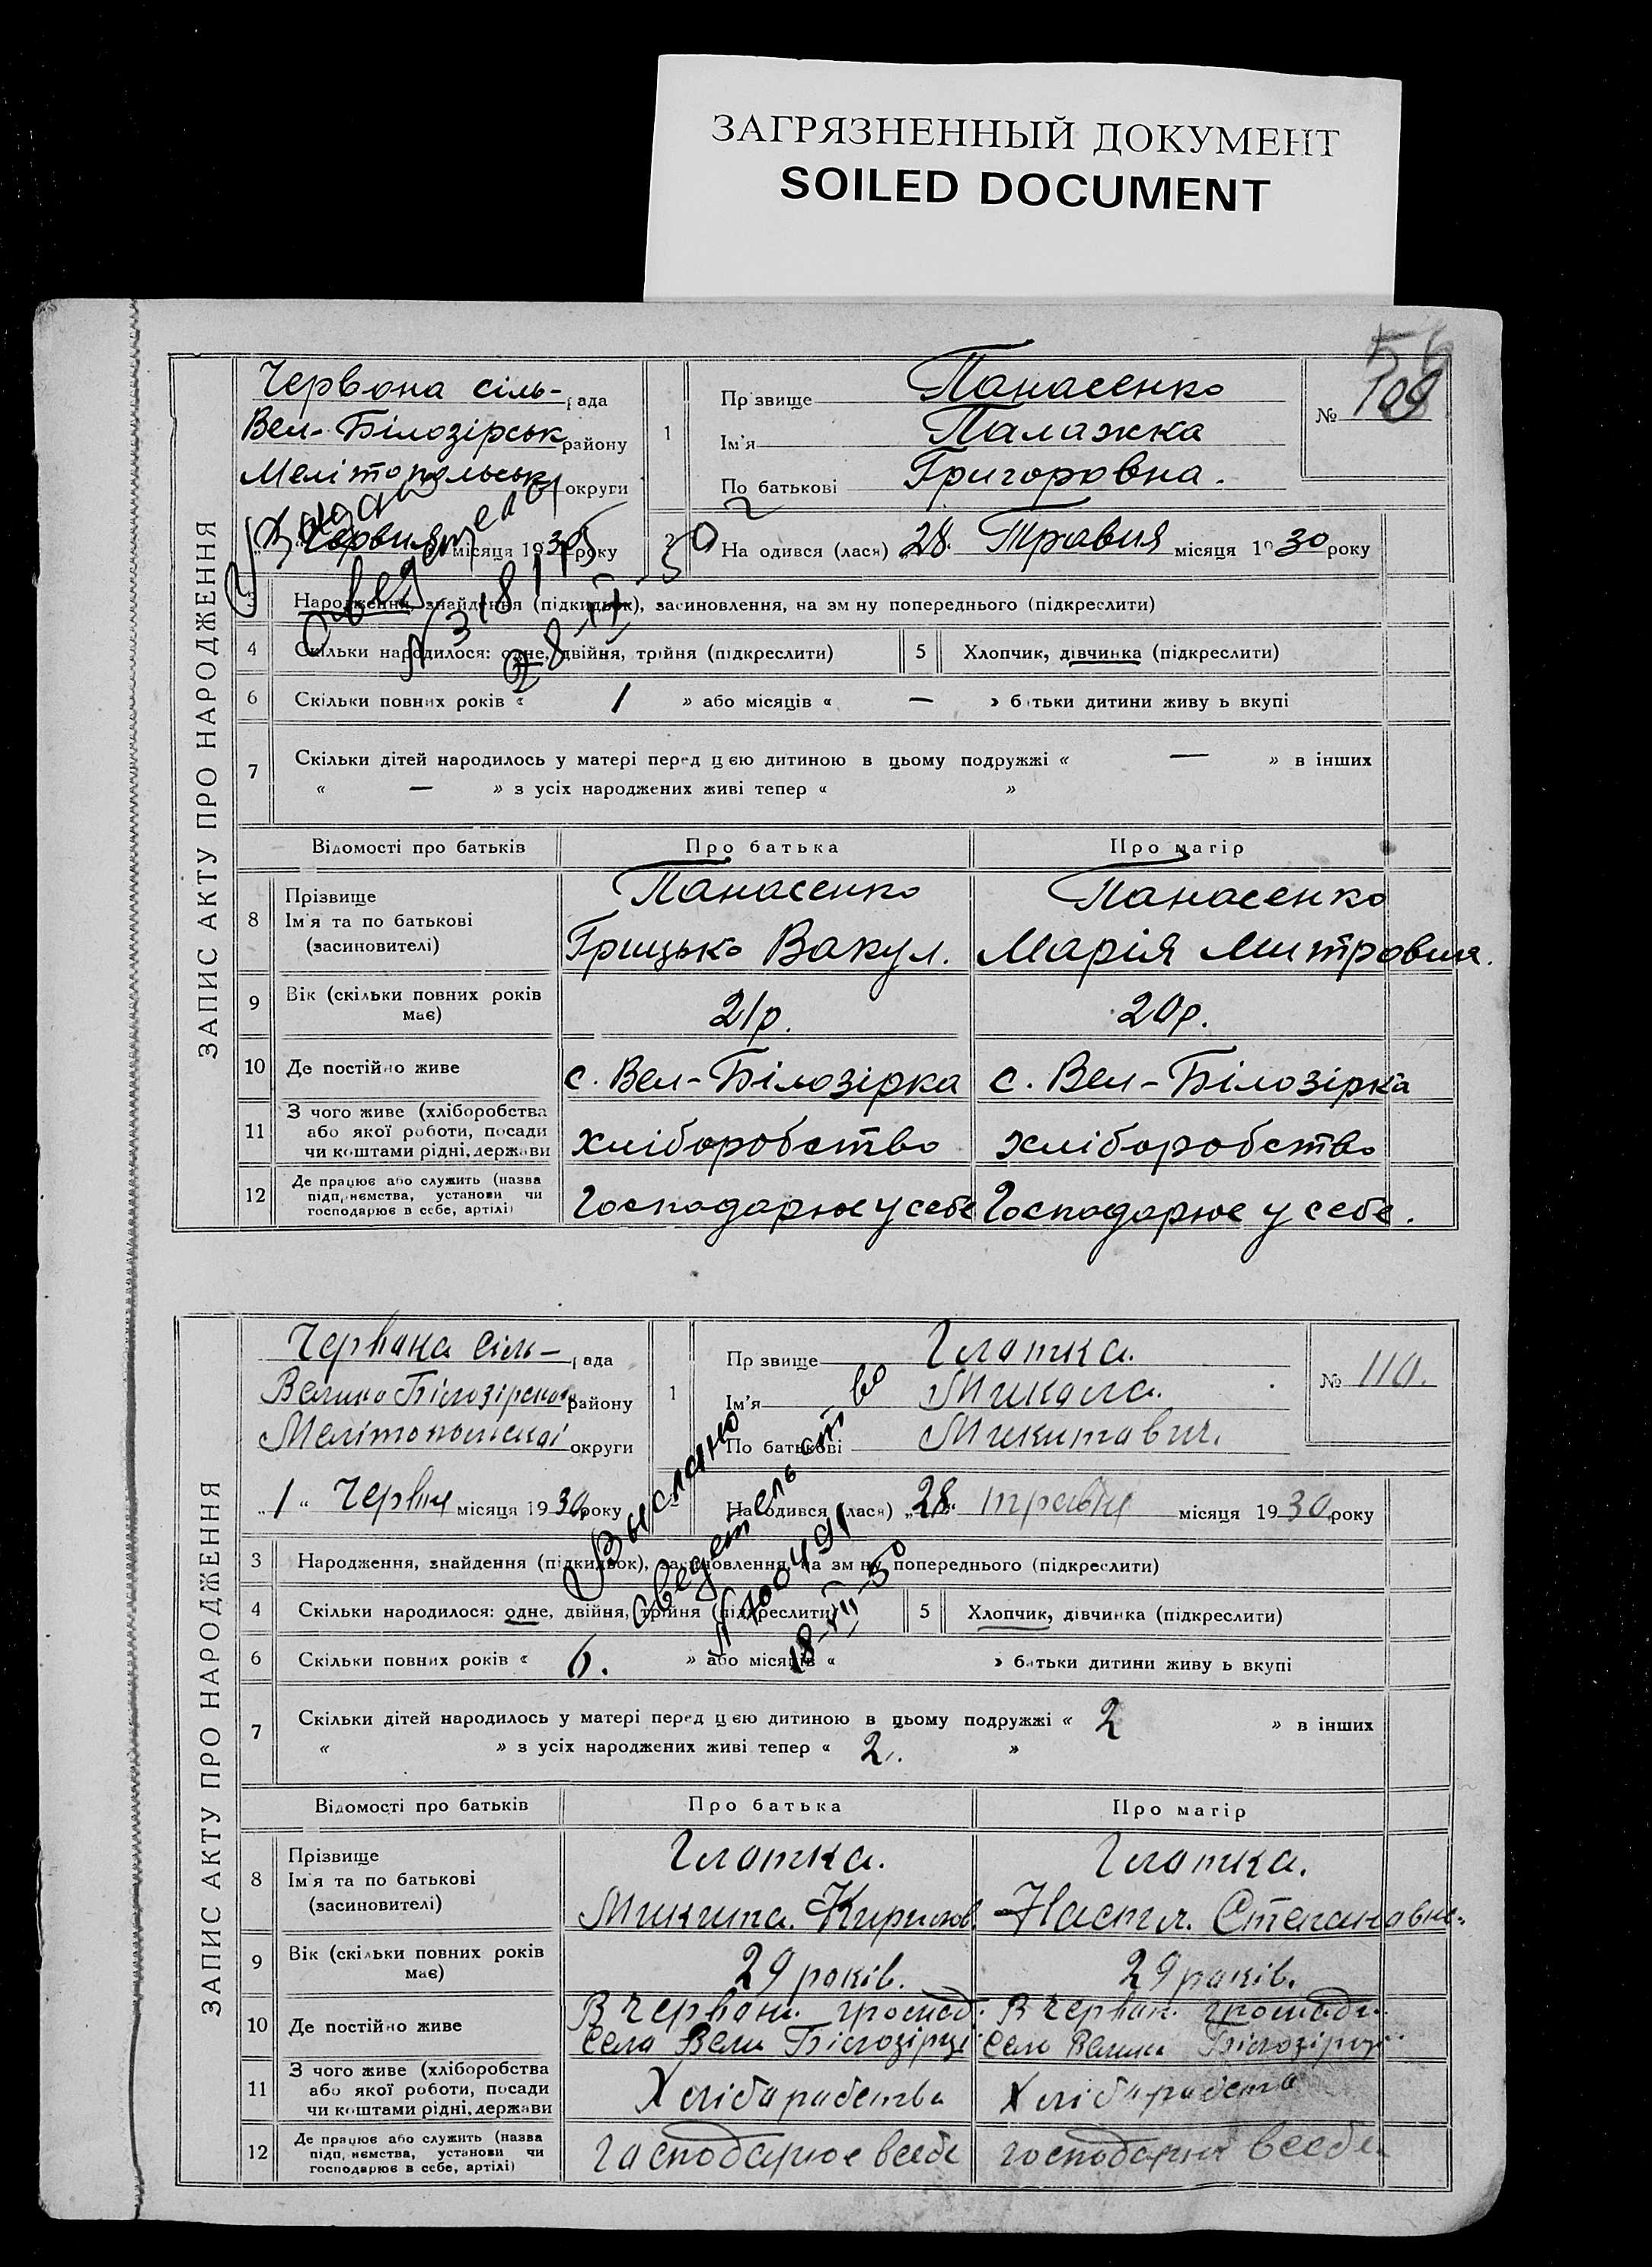 ЗАГРЯЗНЕННЫЙ ДОКУМЕНТ
SOILED DOCUMENT
56
ЗАПИС АКТУ ПРО НАРОДЖЕННЯ
Червона сіль-рада
Вел-Білозірськ району
Мелітопольськ округи
Червня місяця 1930 року
1 Прізвище Панасенко
Ім'я Палажка
По батькові Григоровна.
№ 109
2 Народився (лася) 28 Травня місяця 1930 року
3 Народження, знайдення (підкидьок), засиновлення, на зміну попереднього (підкреслити)
4 Скільки народилося: одне, двійня, трійня (підкреслити) 5 Хлопчик, дівчинка (підкреслити)
6 Скільки повних років « 1 » або місяців « — » батьки дитини живуть вкупі
7 Скільки дітей народилось у матері перед цією дитиною в цьому подружжі « — » в інших
« — » з усіх народжених живі тепер « »
Відомості про батьків Про батька Про матір
8 Прізвище Панасенко Панасенко
Ім'я та по батькові
(засиновителі) Грицько Вакул. Марія Митровна.
9 Вік (скільки повних років має) 21р. 20р.
10 Де постійно живе с. Вел-Білозірка с. Вел-Білозірка
11 З чого живе (хліборобства
або якої роботи, посади
чи коштами рідні, держави хліборобство хліборобство
12 Де працює або служить (назва
підприємства, установи чи
господарює в себе, артілі) Господарює у себе Господарює у себе.
ЗАПИС АКТУ ПРО НАРОДЖЕННЯ
Червона сіль-рада
Велико Білозірского району
Мелітопольскої округи
„1“ Червня місяця 1930 року
1 Прізвище Глотка.
Ім'я Микола.
По батькові Микитович.
№ 110.
Народився (лася) „28“ травня місяця 1930 року
Выслано
сведетельство
N 100491
18-VII-50
3 Народження, знайдення (підкидьок), засиновлення, на зміну попереднього (підкреслити)
4 Скільки народилося: одне, двійня, трійня (підкреслити) 5 Хлопчик, дівчинка (підкреслити)
6 Скільки повних років « 6. » або місяців « » батьки дитини живуть вкупі
7 Скільки дітей народилось у матері перед цією дитиною в цьому подружжі « 2 » в інших
« » з усіх народжених живі тепер « 2. »
Відомості про батьків Про батька Про матір
8 Прізвище Глотка. Глотка.
Ім'я та по батькові
(засиновителі) Микита. Кирилов. Настя. Степановна.
9 Вік (скільки повних років має) 29 років. 29 років.
10 Де постійно живе В Червон. громад. В Червон. громади.
Села Вели Білозірці Село Велика Білозірці
11 З чого живе (хліборобства
або якої роботи, посади
чи коштами рідні, держави Хліборобства Хліборобства
12 Де працює або служить (назва
підприємства, установи чи
господарює в себе, артілі) господарює всебе господарює всебе